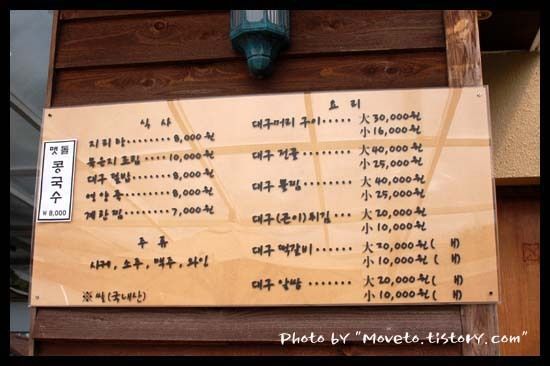 맷돌
콩국수
₩ 8,000
식 사
지리탕········8,000원
묵은지 조림····10,000원
대구 덮밥······8,000원
영양죽·······8,000원
계란찜········7,000원
주 류
사케, 소주, 맥주, 와인
※ 쌀(국내산)
요 리
대구머리 구이····· 大 30,000원
小 16,000원
대구 전골······ 大 40,000원
小 25,000원
대구 뽈찜······ 大 40,000원
小 25,000원
대구(곤이)튀김···· 大 20,000원
小 10,000원
대구 떡갈비····· 大 30,000원( 개)
小 10,000원( 개)
대구 양쌈······ 大 20,000원( 개)
小 10,000원( 개)
Photo by "Moveto.tistory.com"